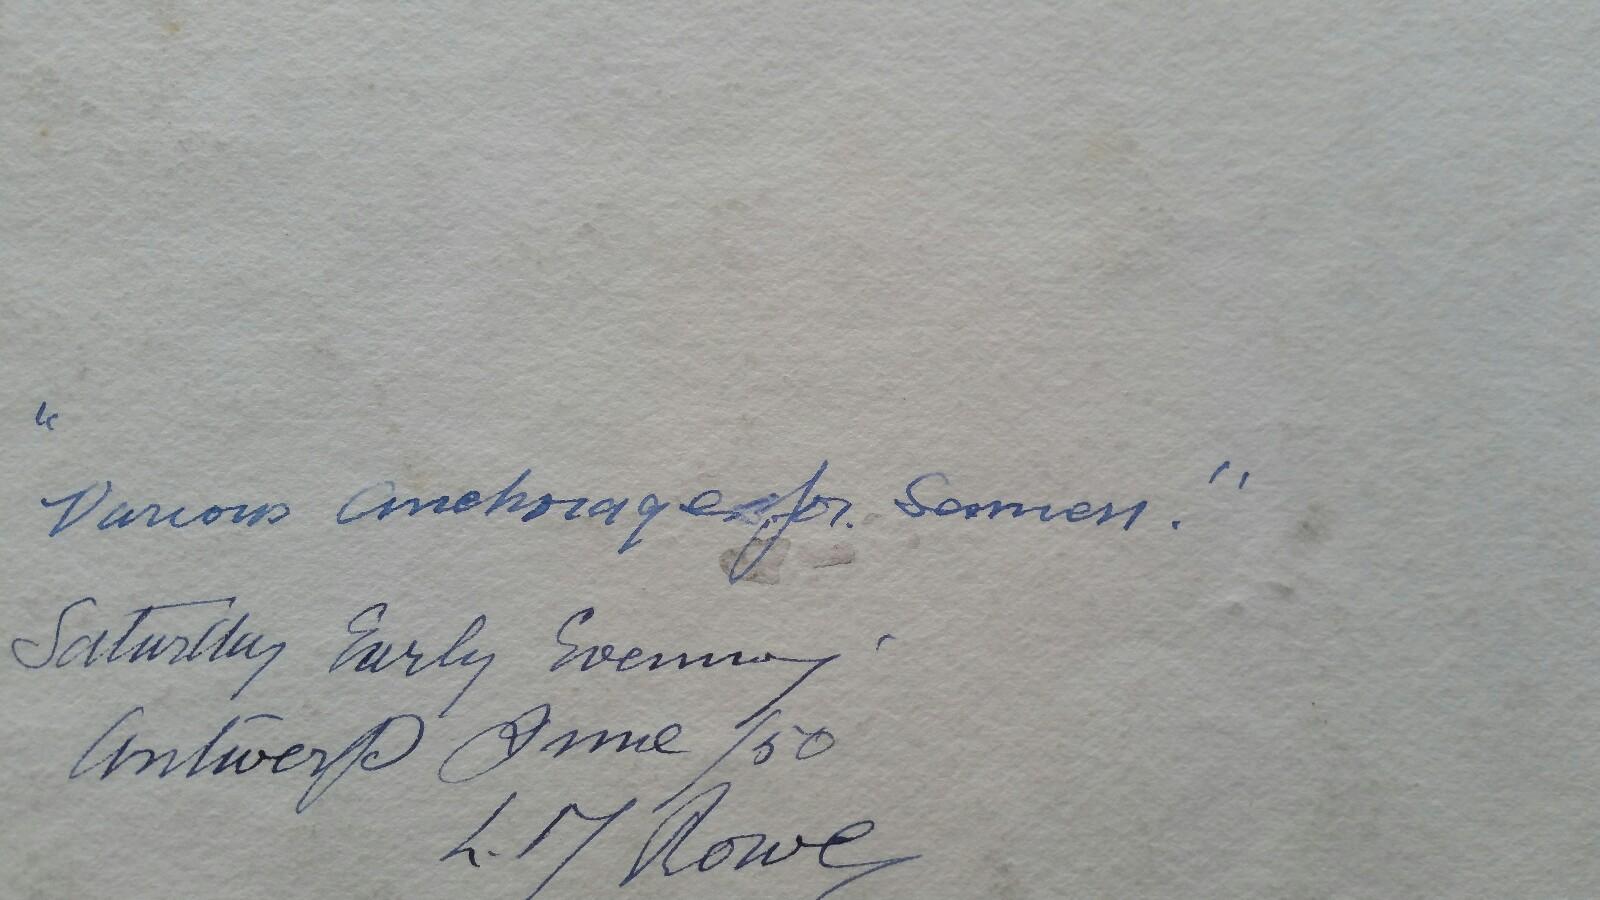 "
Various Anchorages for. Seamen."
Saturday Early Evening
Antwerp June /50
L. M Rowe